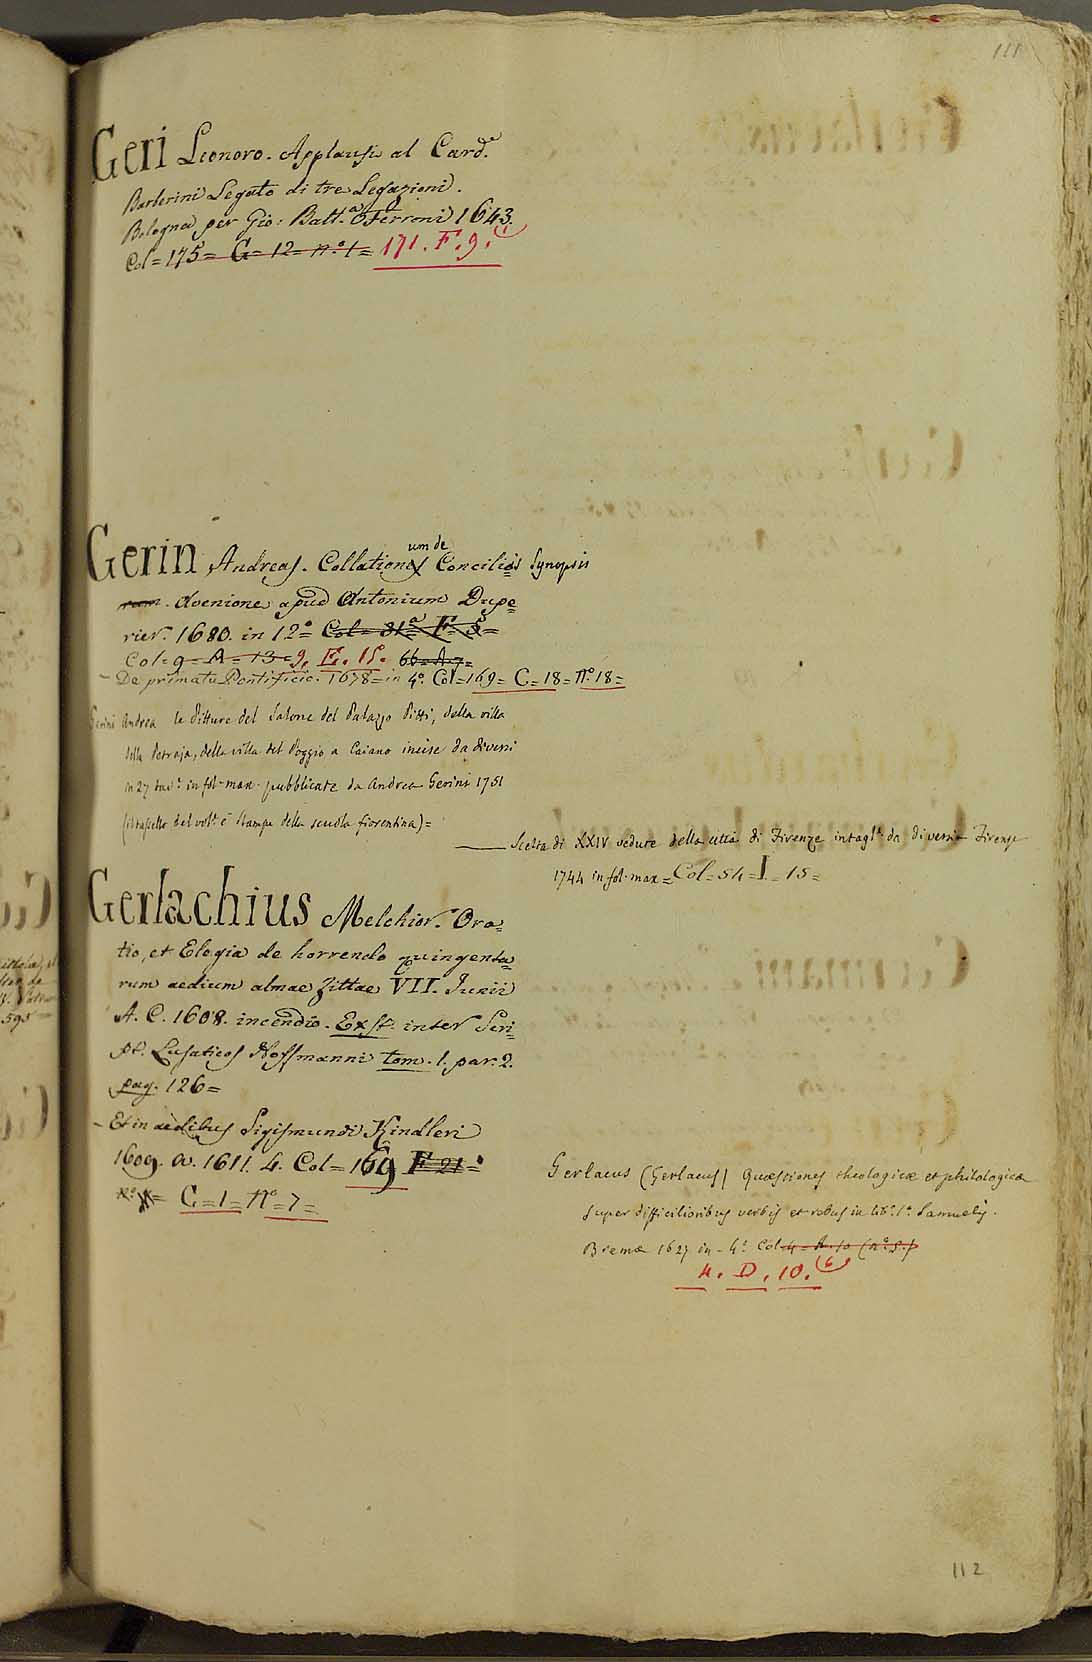 111
Geri Leonoro. Applausi al Card.e
Barberini Legato di tre Legazioni.
Bologna per Gio: Batt.a Ferroni 1643.
Col = 175 = G = 12 = n.o 1 = 171. F. 9. (1
Gerin Andreas. Collationum de Conciliis Synopsis
rum. Avenione apud Antonium Dupe=
rier. 1680. in 12o = Col = 81a = F = 5 =
Col = 9 = A = 13 = 9. E. 15. 66 = A 7 =
– De primatu Pontificio. 1678 = in 4o. Col = 169 = C = 18 = No. 18 =
Gerini Andrea le Pitture del Salone del Palazzo Pitti, della villa
della Petraja, della villa del Poggio a Caiano incise da diversi
in 27 tav.e in fol. max. pubblicate da Andrea Gerini 1751
del vol. è Stampe della scuola fiorentina) =
Scelta di XXIV vedute della città di Firenze intagl.e da diversi Firenze
1744 in fol. max = Col = 54 = I = 15 =
Gerlachius Melchior. Ora=
tio, et Elogia de horrendo quingenta=
rum aedium almae Zittae VII. Junii
A. C. 1608. incendio. Exst. inter Scri=
pt. Lusaticos Hoffmanni tom. 1. par. 2.
pag. 126 =
– Et in aedibus Sigismundi Kindleri
1609. a. 1611. 4. Col = 169 F 21 =
No = C = 1 = No = 7 =
Gerlacus (Gerlacus) Quaestiones theologicae et philologicae
super difficilioribus verbis et rebus in lib.o 1.o Samuelis.
Bremae 1627 in – 4o. Col 4 = A. 10 (no. 5.)
4. D. 10. (6
112